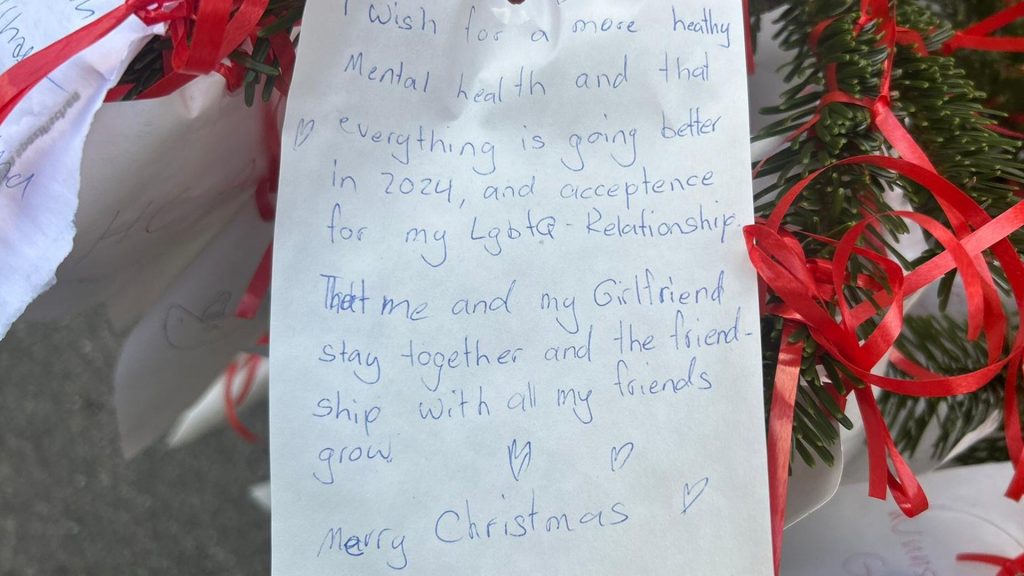 I wish for a more heathy
Mental health and that
everything is going better
in 2024, and acceptence
for my LgbtQ-Relationship.
That me and my Girlfriend
stay together and the friend-
ship with all my friends
grow.
Merry Christmas